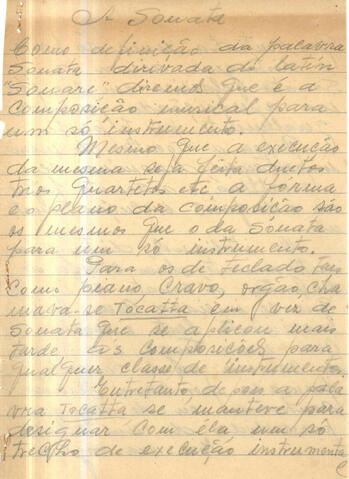 A Sonata
Como definição da palavra
Sonata dirivada do latin
"Sonare" diremos que é a
composição musical para
um só instrumento.
Mesmo que a execução
da mesma seja feita duetos
trios quartetos etc a forma
e o plano da composição são
os mesmos que o da Sonata
para um só instrumento.
Para os de teclado tais
como piano Cravo, orgão, cha
mava-se Tocatta em vez de
Sonata que se aplicou mais
tarde ás composições para
qualquer classe de instrumento.
Entretanto, depois a pala
vra Tocatta se manteve para
designar com ela um só
trecho de execução instrumenta